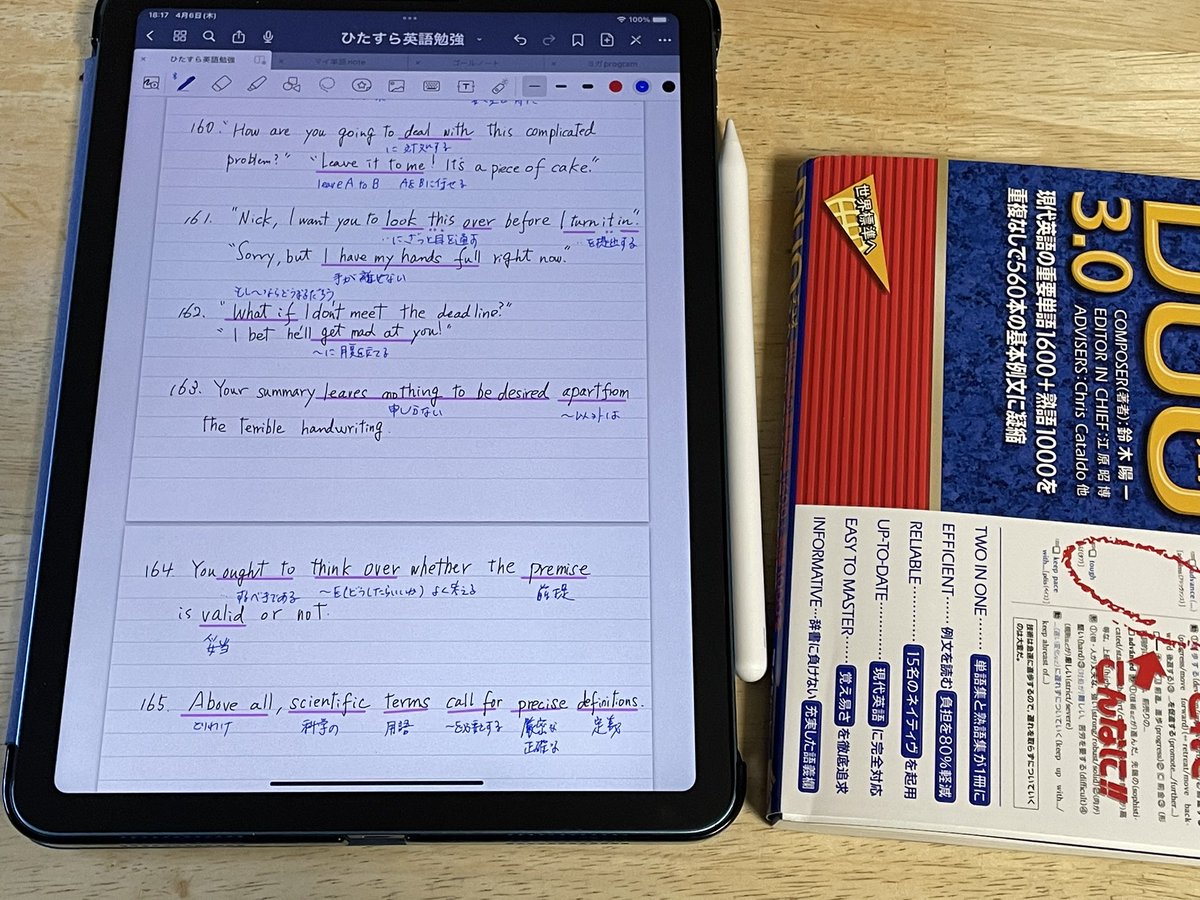 18:17 4月6日(木)
100%
ひたすら英語勉強
ひたすら英語勉強
マイ単語note
ゴールノート
ヨガprogram
160. "How are you going to deal with this complicated
に対処する
problem?" "Leave it to me! It's a piece of cake."
leave A to B AをBに任せる
161. "Nick, I want you to look this over before I turn it in."
…にざっと目を通す を提出する
"Sorry, but I have my hands full right now."
手が離せない
もし〜ならどうなるだろう
162. "What if I don't meet the deadline?"
"I bet he'll get mad at you!"
〜に腹を立てる
163. Your summary leaves nothing to be desired apart from
申し分ない 〜以外は
the terrible handwriting.
164. You ought to think over whether the premise
するべきである 〜を(どうしたらいいか)よく考える 前提
is valid or not.
妥当
165. Above all, scientific terms call for precise definitions.
とりわけ 科学の 用語 〜を必要とする 厳密な 定義
正確な
世界標準へ
DUO
3.0
現代英語の重要単語1600+熟語1000を
重複なしで560本の基本例文に凝縮
COMPOSER(著者):鈴木陽一
EDITOR IN CHIEF:江原昭博
ADVISERS:Chris Cataldo 他
TWO IN ONE………単語集と熟語集が1冊に
EFFICIENT………例文を読む負担を80%軽減
RELIABLE………15名のネイティヴを起用
UP-TO-DATE………現代英語に完全対応
EASY TO MASTER……覚え易さを徹底追求
INFORMATIVE…辞書に負けない充実した語義欄
tough
keep pace
with...
技術は急速に進歩するので、遅れを取らずについていく
のは大変だ。
keep abreast of...
こんなに!!